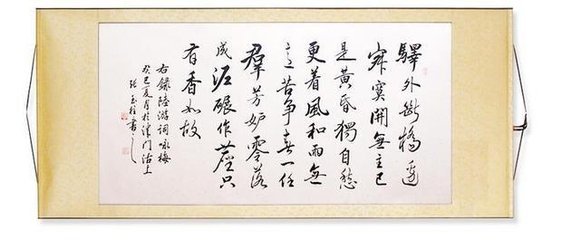 驛外斷橋邊
寂寞開無主已
是黃昏獨自愁
更着風和雨無
意苦爭春一任
羣芳妒零落
成泥碾作塵只
有香如故
右錄陸游詞詠梅
癸巳夏月於津門沽上
玉桂書